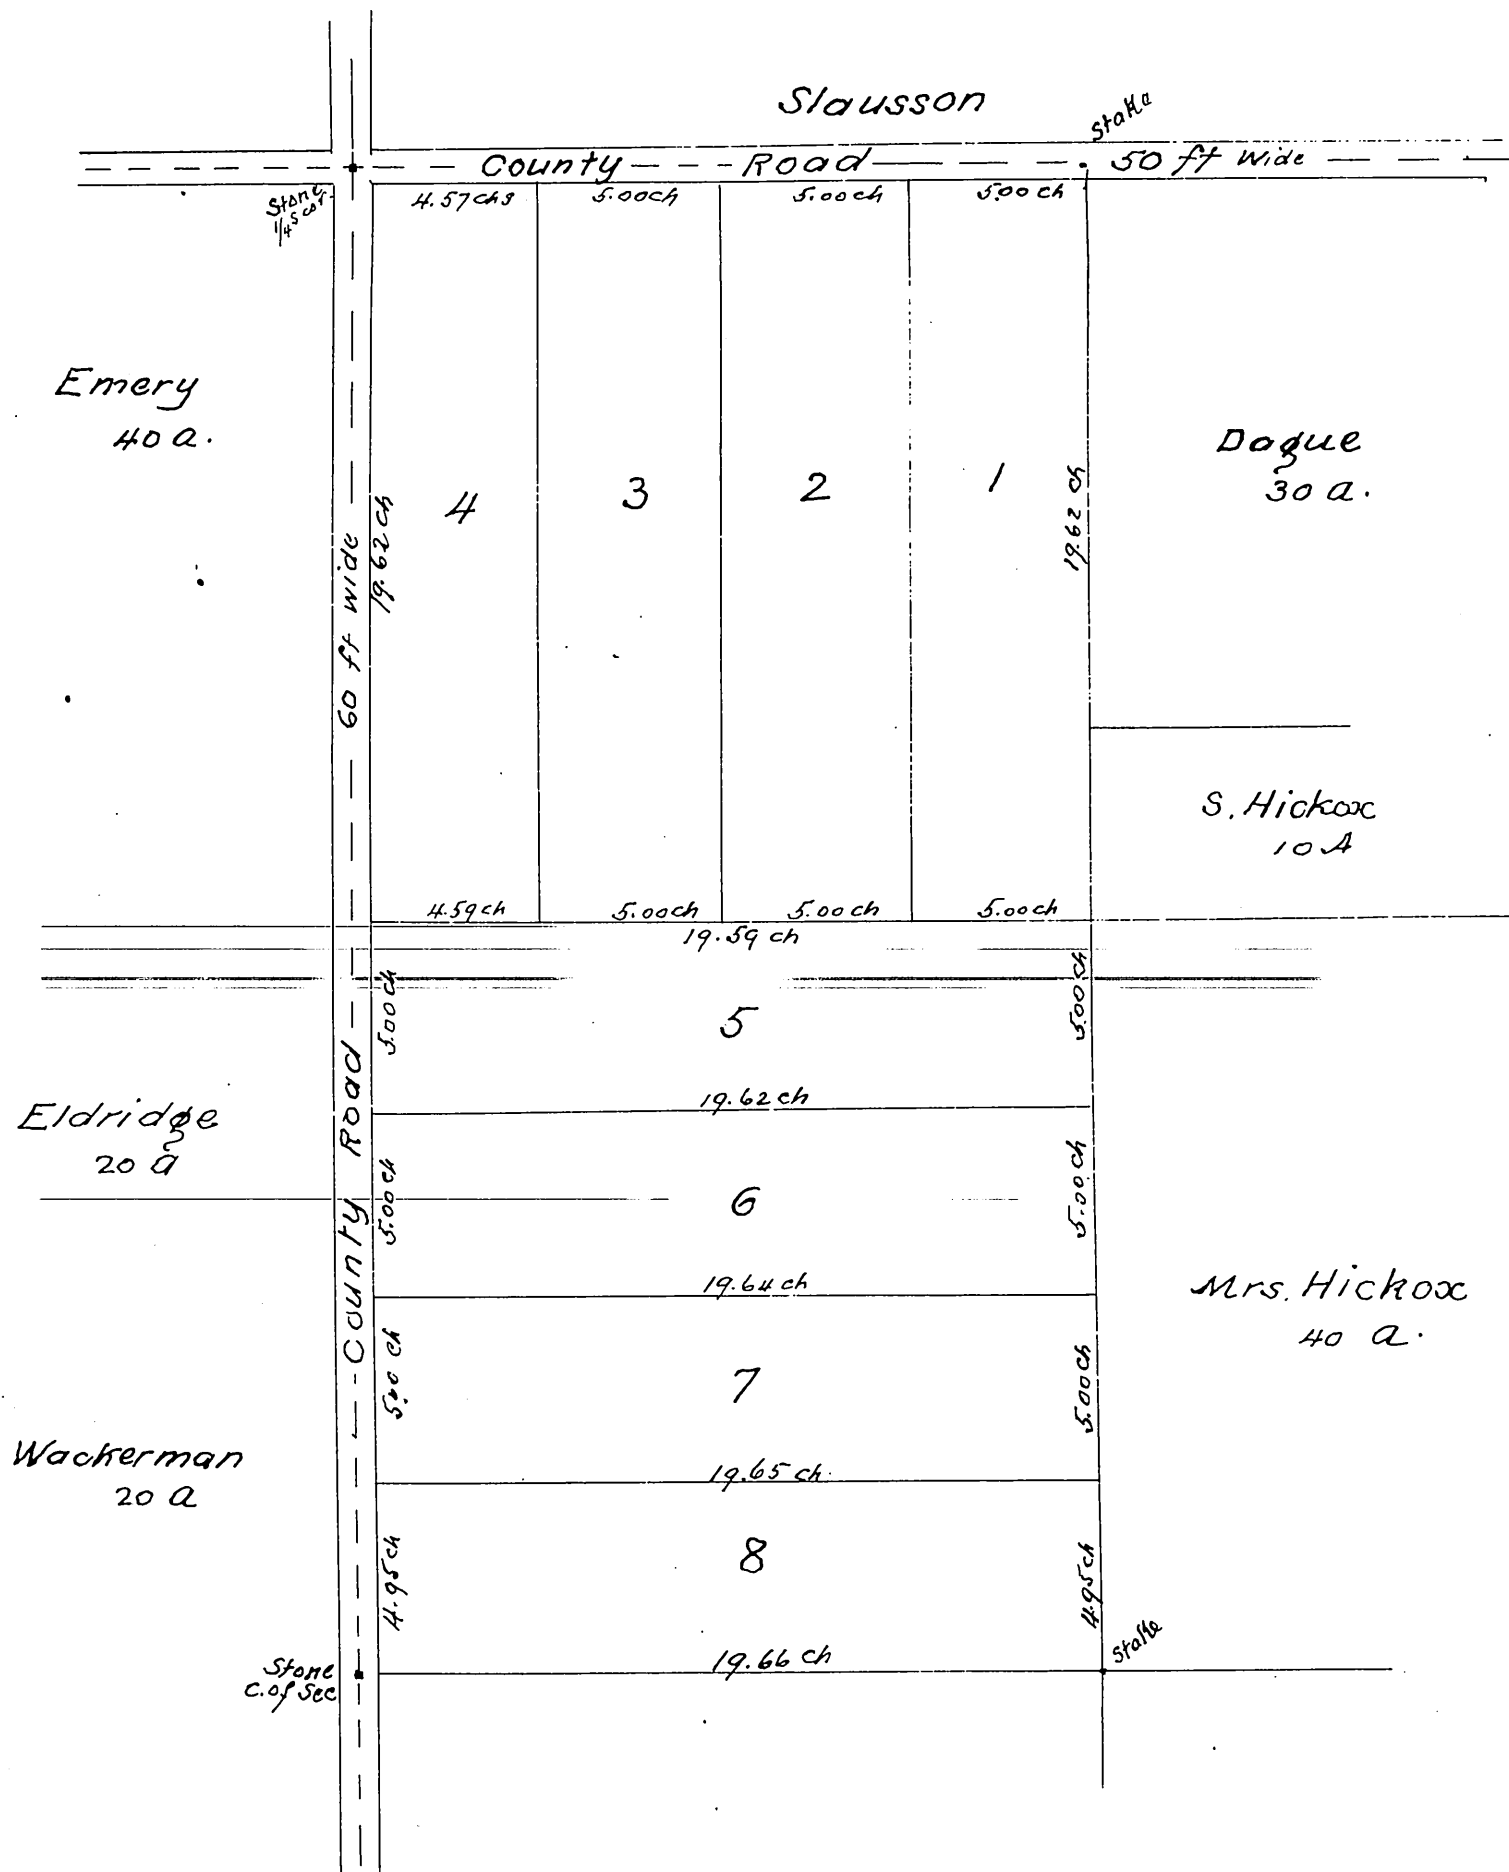 Slausson
Stake
County Road 50 ft Wide
Stone
1/4 S cor.
4.57 chs 5.00 ch 5.00 ch 5.00 ch
Emery
40 a.
Dague
30 a.
4 3 2 1
19.62 ch
19.62 ch
60 ft wide
S. Hickox
10 A
4.59 ch 5.00 ch 5.00 ch 5.00 ch
19.59 ch
5.00 ch
5
5.00 ch
19.62 ch
Eldridge
20 a
County Road
5.00 ch
6
5.00 ch
19.64 ch
Mrs. Hickox
40 a.
5.00 ch
7
5.00 ch
19.65 ch.
Wackerman
20 a
4.95 ch
8
4.95 ch
Stake
19.66 ch
Stone
C. of Sec